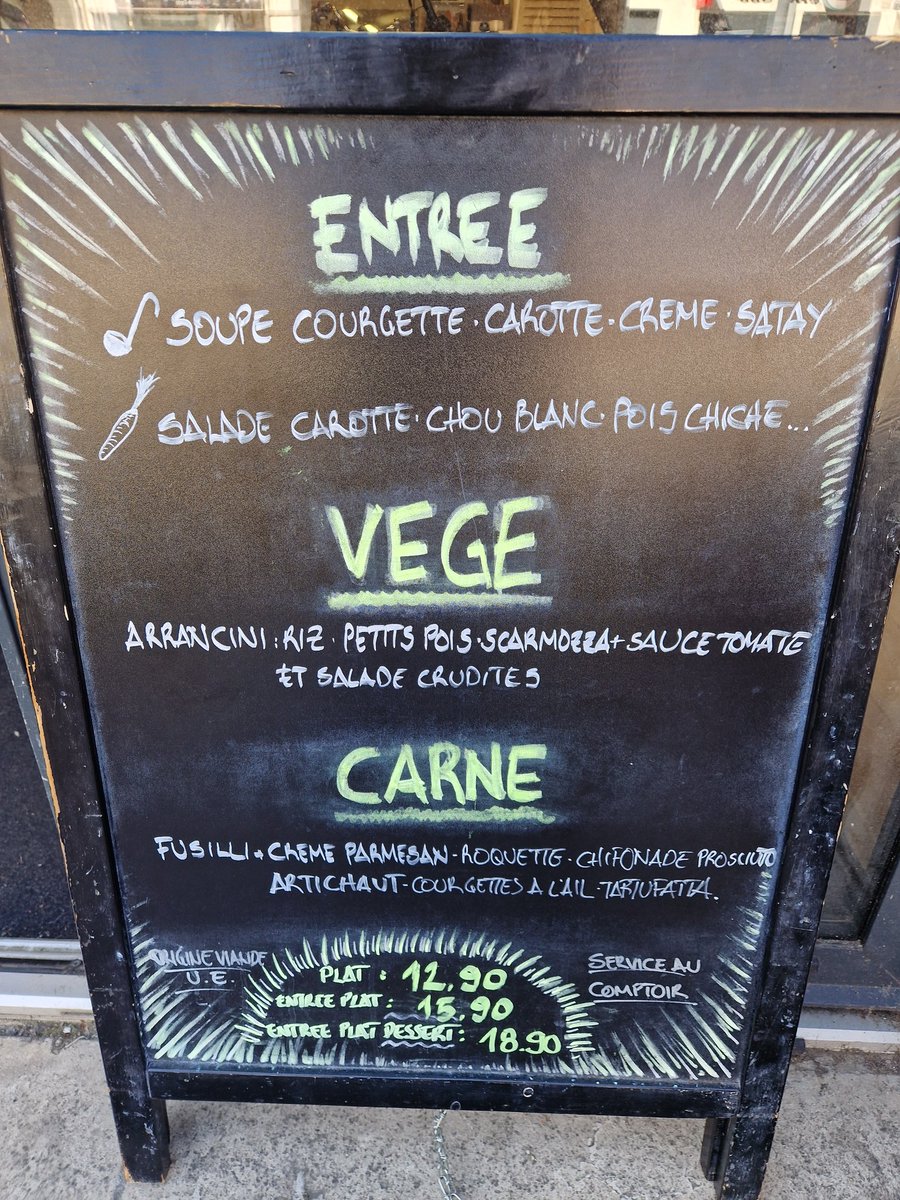 ENTREE
SOUPE COURGETTE · CAROTTE · CREME · SATAY
SALADE CAROTTE · CHOU BLANC · POIS CHICHE...
VEGE
ARRANCINI : RIZ · PETITS POIS · SCARMOZZA + SAUCE TOMATE
ET SALADE CRUDITES
CARNE
FUSILLI + CREME PARMESAN · ROQUETTE · CHIFONADE PROSCIUTO
ARTICHAUT · COURGETTES A L'AIL · TARTUFATTA.
ORIGINE VIANDE
U.E.
PLAT : 12.90
ENTREE PLAT : 15.90
ENTREE PLAT DESSERT : 18.90
SERVICE AU
COMPTOIR